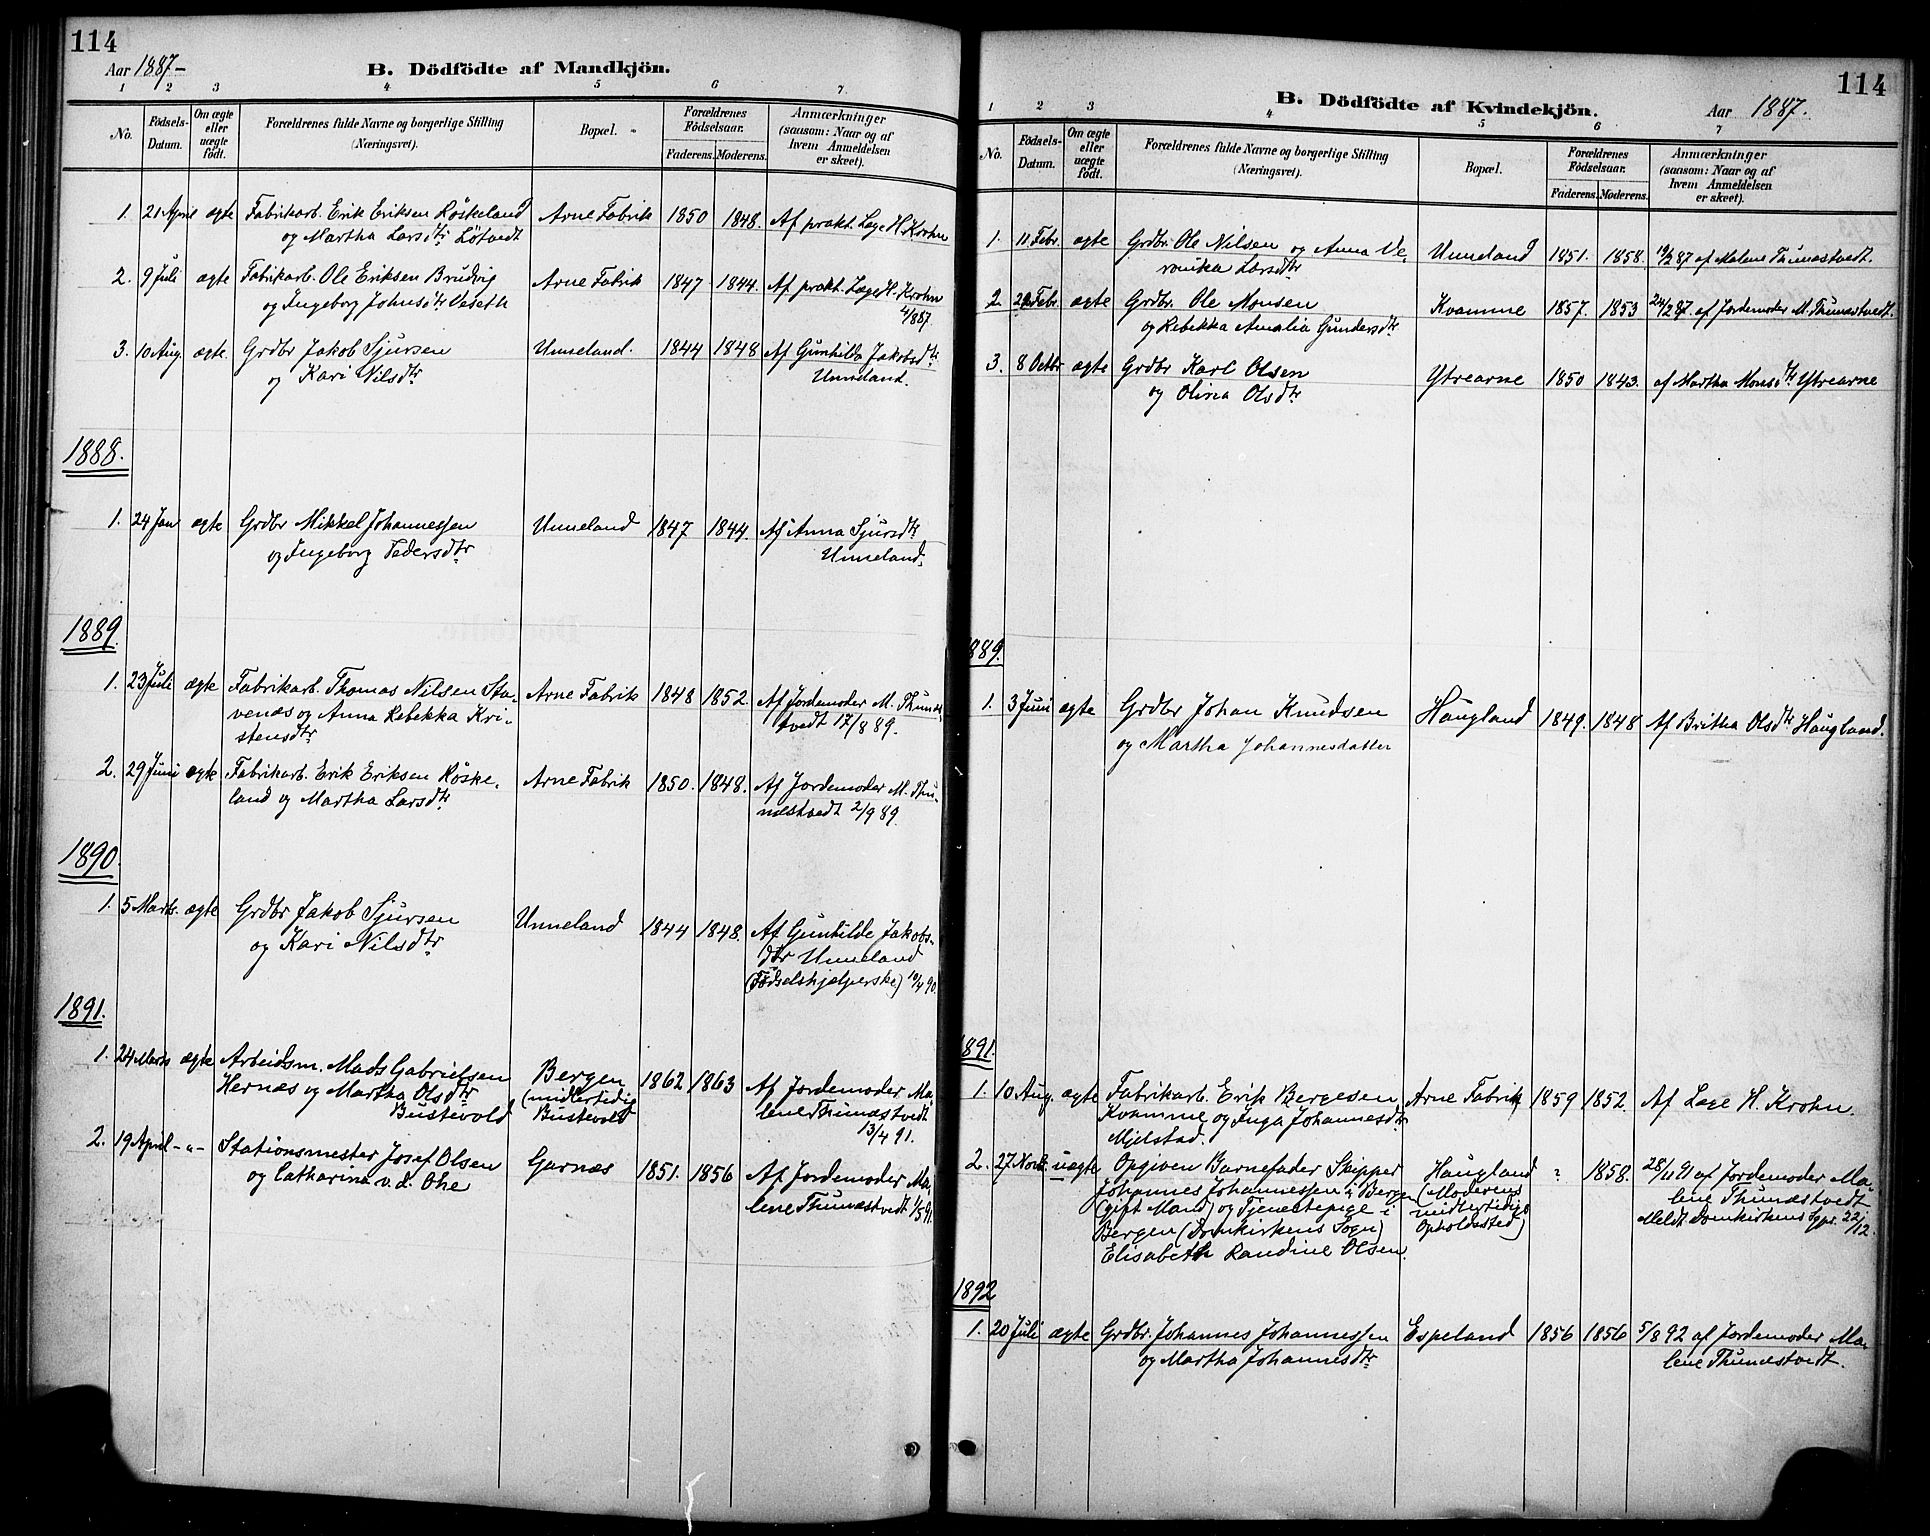 114
Aar 1887-
B. Dödfödte af Mandkjön.
1 2 3 4 5 6 7
No.
Födsels-Datum.
Om ægte eller uægte födt.
Forældrenes fulde Navne og borgerlige Stilling (Næringsvei).
Bopæl.
Forældrenes Födselsaar.
Faderens. Moderens.
Anmærkninger (saasom: Naar og af hvem Anmeldelsen er skeet).
1. 21 April ægte Fabrikarb. Erik Eriksen Röskeland Arne Fabrik 1850 1848. Af prakt. Læge H. Krohn
og Martha Larsdtr Løtvedt
2. 9 Juli ægte Fabrikarb. Ole Eriksen Brudvig Arne Fabrik 1847 1844. Af prakt. Læge H. Krohn
og Ingeborg Johnsdtr Veseth 4/887.
3. 10 Aug. ægte. Grdbr Jakob Sjursen Unneland. 1844 1848 Af Gunhilda Jakobsdtr
og Kari Nilsdtr. Unneland.
1888.
1. 24 Jan ægte Grdbr Mikkel Johannessen Unneland 1847 1844. Af Anna Sjursdtr
og Ingeborg Pedersdtr Unneland.
1889.
1. 23 Juli ægte Fabrikarb. Thomas Nilsen Sta- Arne Fabrik 1848 1852. Af Jordemoder M. Thunæs-
venæs og Anna Rebekka Kri- tvedt 17/8 89.
stensdtr
2. 29 Juni ægte Fabrikarb. Erik Eriksen Röske- Arne Fabrik 1850. 1848. Af Jordemoder M. Thu-
land og Martha Larsdtr næstvedt 2/9 89.
1890.
1. 5 Marts. ægte Grdbr Jakob Sjursen Unneland 1844 1848. Af Gunhilde Jakobs-
og Kari Nilsdtr dtr Unneland
(Födselshjælperske) 10/4 90.
1891.
1. 24 Marts ægte Arbeidsm. Mads Gabrielsen Bergen 1862 1863 Af Jordemoder Ma-
Hernæs og Martha Olsdtr (midlertidig lene Thunæstvedt
Bustevold Bustevold 13/4 91.
2. 19 April -"- Stationsmester Josef Olsen Garnæs 1851. 1856 Af Jordemoder Ma-
og Catharina v.d. Ohe lene Thunæstvedt 1/5 91.
114
B. Dödfödte af Kvindekjön.
Aar 1887.
1 2 3 4 5 6 7
No.
Födsels-Datum.
Om ægte eller uægte födt.
Forældrenes fulde Navne og borgerlige Stilling (Næringsvei).
Bopæl.
Forældrenes Födselsaar.
Faderens. Moderens.
Anmærkninger (saasom: Naar og af hvem Anmeldelsen er skeet).
1. 11 Febr. ægte Grdbr. Ole Nilsen og Anna Ve- Unneland 1851. 1858. 87 af Malene Thunæstvedt.
ronika Larsdtr
2. Febr. ægte Grdbr. Ole Monsen Kvamme 1857. 1853 24/2 87. af Jordemoder M. Thunæstvedt.
og Rebekka Amalia Gundersdtr
3. 8 Octbr ægte Grdbr Karl Olsen Ytrearne 1850 1843. af Martha Monsdtr Ytrearne
og Olina Olsdtr
1889.
1. 3 Juni ægte Grdbr Johan Knudsen Haugland 1849. 1848 Af Britha Olsdtr Haugland.
og Martha Johannesdatter
1891.
1. 10 Aug. ægte Fabrikarb. Erik Bergesen Arne Fabrik 1859 1852. Af Læge H. Krohn.
Kvamme og Inga Johannesdtr
Mjelstad.
2. 27. Novb. uægte Opgiven Barnefader Skipper Haugland " 1858. 28/11 91 af Jordemoder Ma-
Johannes Johannessen i Bergen (Moderens lene Thunæstvedt
(gift Mand) og Tjenestepige i midlertidige Meldt Domkirkens Sgpr. 22/12.
Bergen (Domkirkens Sogn) Opholdssted)
Elisabeth Randine Olsen.
1892
1. 20 Juli ægte Grdbr. Johannes Johannessen Espeland 1856 1856 5/8 92 af Jordemoder Ma-
og Martha Johannesdtr. lene Thunæstvedt.